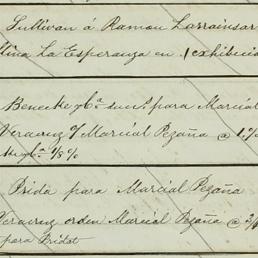 Sullivan á Ramon Larrainsar
tina La Esperanza en 1 exhibició
Benecke y Cª sucs para Marcial
Veracruz o/ Marcial Pezaña @ 1%
1/8 %
Brida para Marcial Pezaña
Veracruz orden Marcial Pezaña @ 3/
para Bridat